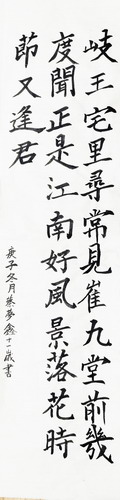 岐王宅里尋常見崔九堂前幾
度聞正是江南好風景落花時
節又逢君
庚子冬月蔡夢鑫十一歲書